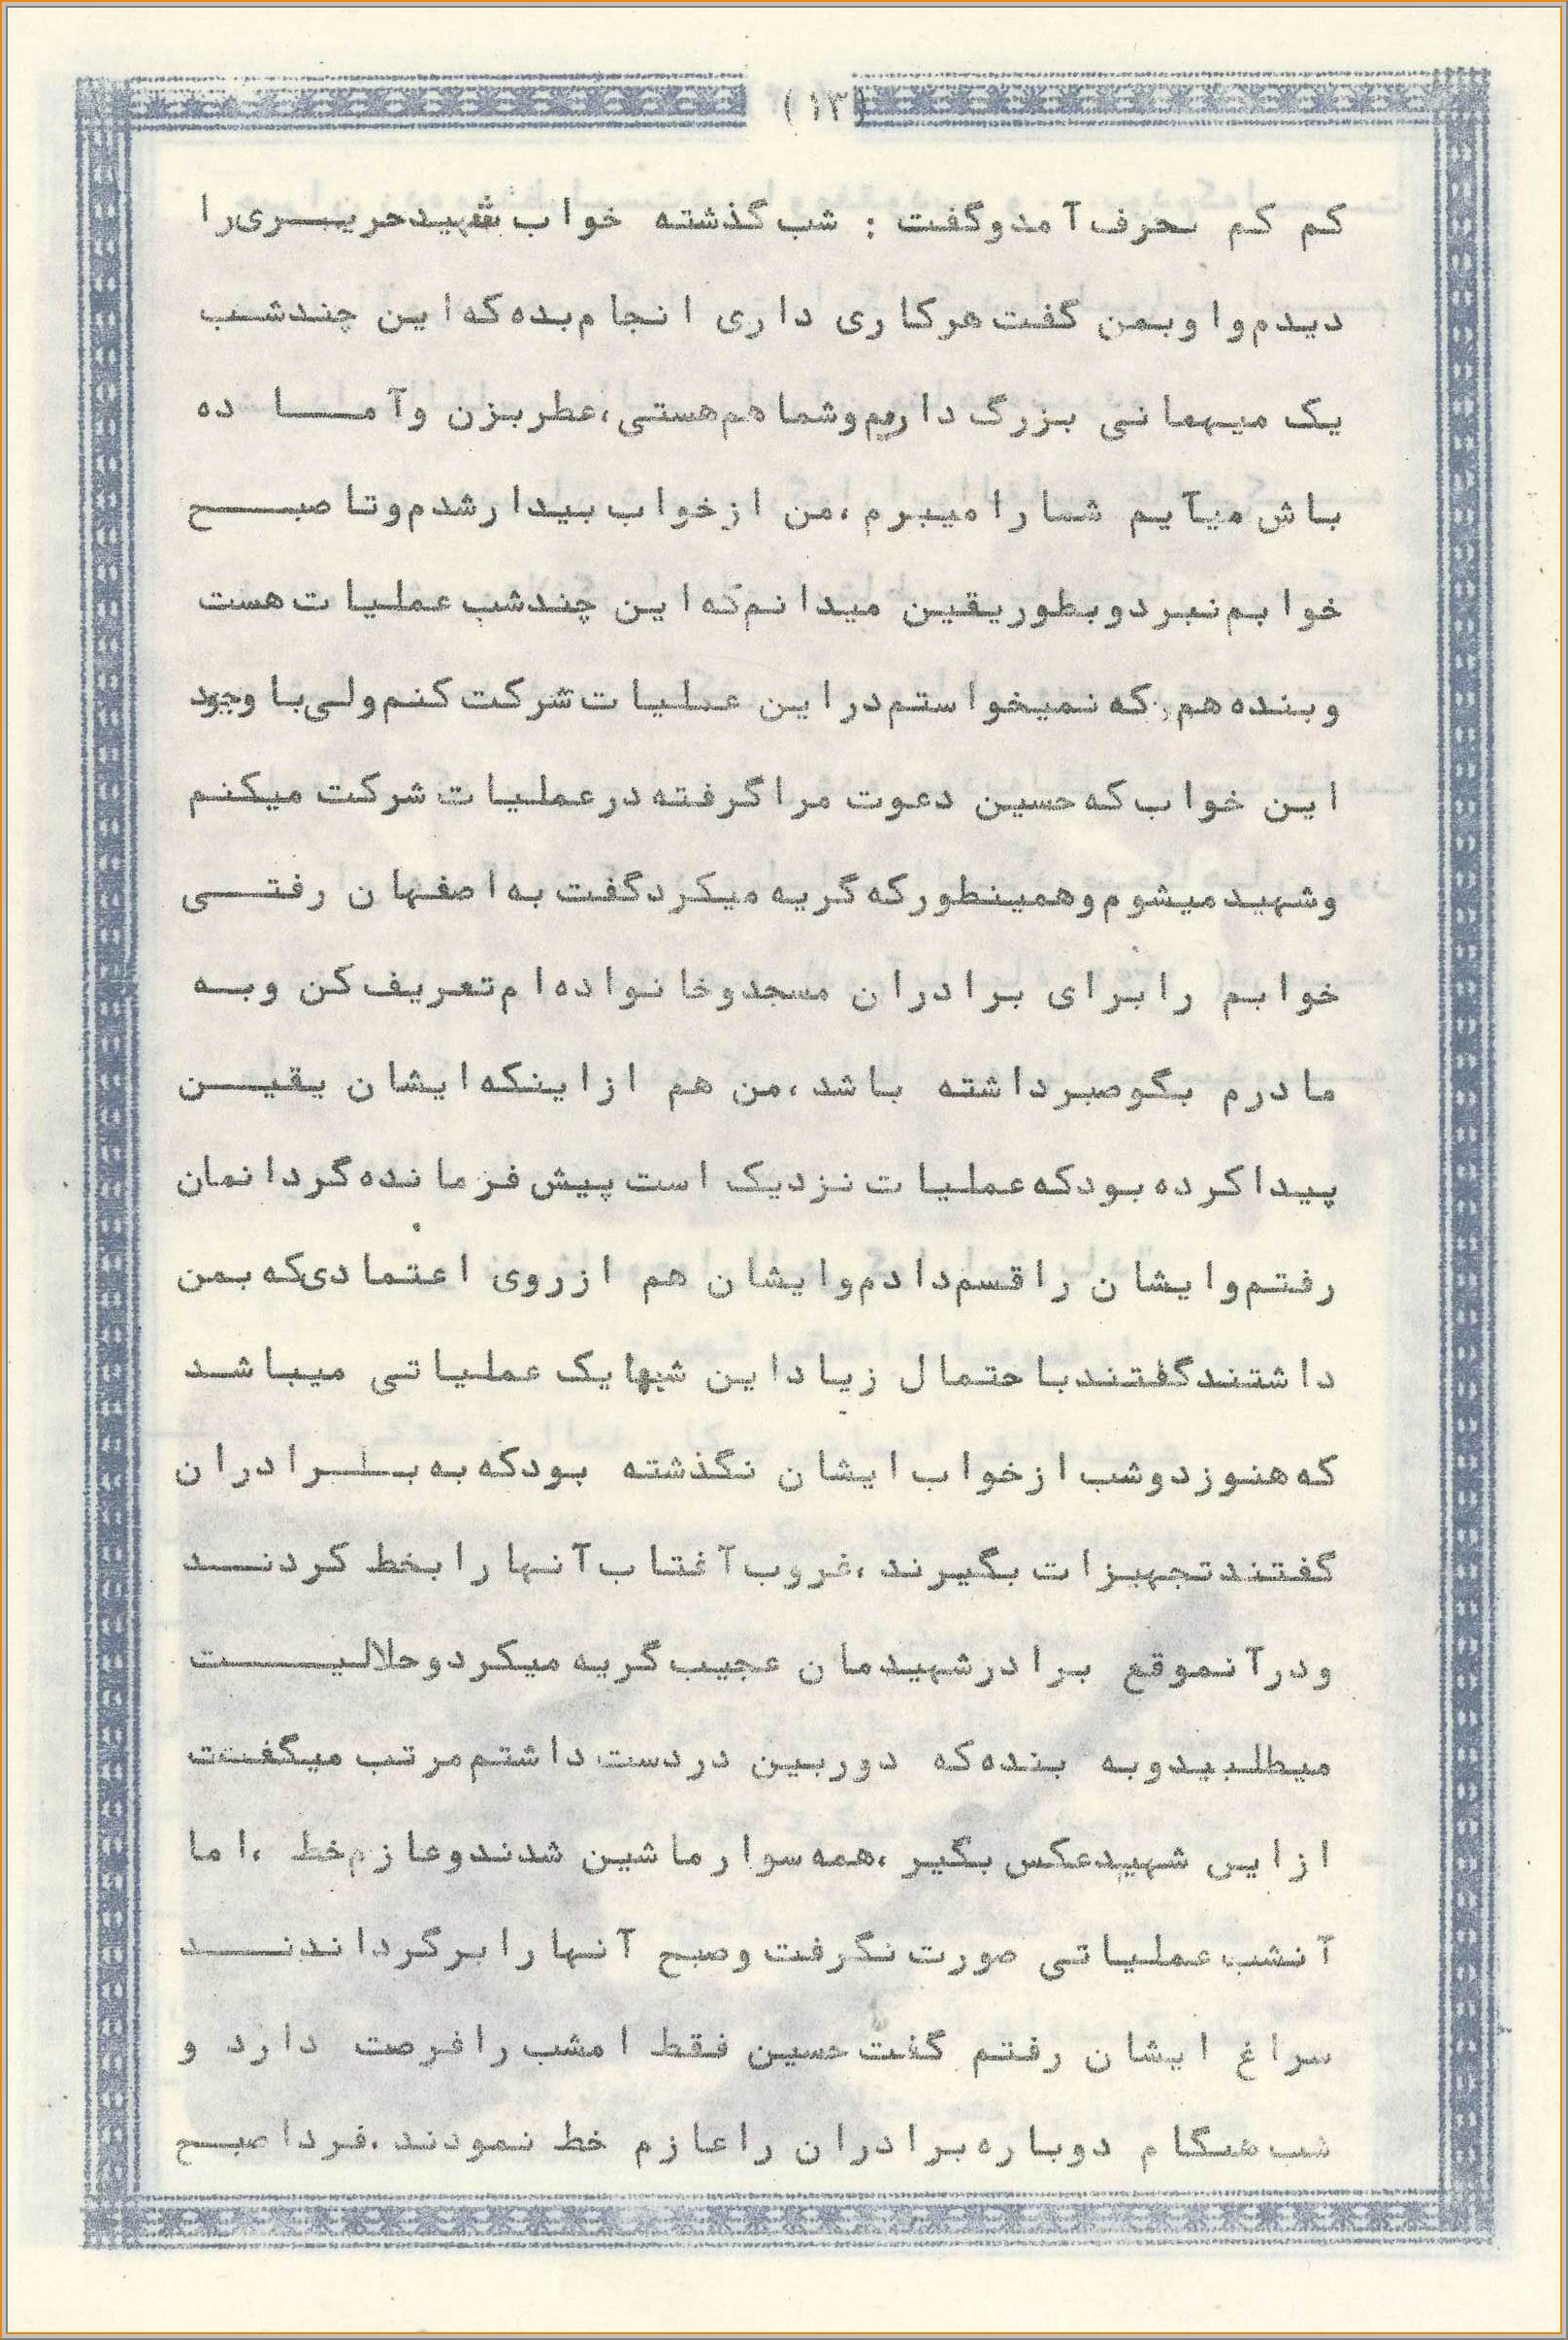 (۱۳)
کم کم بحرف آمد و گفت : شب گذشته خواب شهید حریری را
دیدم و او بمن گفت هر کاری داری انجام بده که این چند شب
یک میهمانی بزرگ داریم و شما هم هستی ، عطر بزن و آماده
باش میآیم شما را میبرم ، من از خواب بیدار شدم و تا صبح
خوابم نبرد و بطور یقین میدانم که این چند شب عملیات هست
و بنده هم که نمیخواستم در این عملیات شرکت کنم ولی با وجود
این خواب که حسین دعوت مرا گرفته در عملیات شرکت میکنم
و شهید میشوم و همینطور که گریه میکرد گفت به اصفهان رفتی
خوابم را برای برادران مسجد و خانواده ام تعریف کن و به
مادرم بگو صبر داشته باشد ، من هم از اینکه ایشان یقین
پیدا کرده بود که عملیات نزدیک است پیش فرمانده گردانمان
رفتم و ایشان را قسم دادم و ایشان هم از روی اعتمادی که بمن
داشتند گفتند باحتمال زیاد این شبها یک عملیاتی میباشد
که هنوز دو شب از خواب ایشان نگذشته بود که به برادران
گفتند تجهیزات بگیرند ، غروب آفتاب آنها را بخط کردند
و در آنموقع برادر شهیدمان عجیب گریه میکرد و حلالیت
میطلبید و به بنده که دوربین در دست داشتم مرتب میگفت
از این شهید عکس بگیر ، همه سوار ماشین شدند و عازم خط ، اما
آنشب عملیاتی صورت نگرفت و صبح آنها را برگرداندند
سراغ ایشان رفتم گفت حسین فقط امشب را فرصت دارد و
شب هنگام دوباره برادران را عازم خط نمودند . فردا صبح